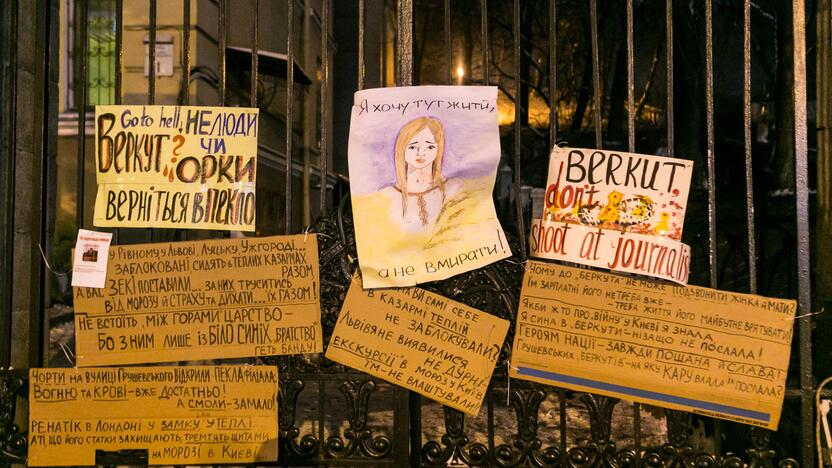 Go to hell, НЕЛЮДИ
ЧИ
БЕРКУТ? ОРКИ
ВЕРНІТЬСЯ В ПЕКЛО
Я ХОЧУ ТУТ ЖИТИ,
А НЕ ВМИРАТИ!
BERKUT
don't
shoot at journalists
У РІВНОМУ ЛЬВОВІ, ЛУЦЬКУ УЖГОРОДІ...
ЗАБЛОКОВАНІ СИДЯТЬ В ТЕПЛИХ КАЗАРМАХ
РАЗОМ
А ВАС ЗЕКІ ПОСТАВИ ... ЗА НИХ ТРУСИТИСЬ
ВІД МОРОЗУ Й СТРАХУ ТА ДИХАТИ...ЇХ ГАЗОМ!
НЕ ВСТОЇТЬ "МІЖ ГОРАМИ ЦАРСТВО-
БО З НИМ ЛИШЕ ІЗ БІЛО СИНІХ "БРАТСТВО"
ГЕТЬ БАНДУ!
ВИ САМІ СЕБЕ
В КАЗАРМІ ТЕПЛІЙ
НЕ ЗАБЛОКУВАЛИ?
ЛЬВІВ'ЯНЕ ВИЯВИЛИСЯ НЕ ДУРНІ-
ЕКСКУРСІЇ В МОРОЗ У КИЇВ
ЇМ-НЕ ВЛАШТУВАЛИ!
ЧОМУ ДО "БЕРКУТА" НЕ МОЖЕ ПОДЗВОНИТИ ЖІНКА Й МАТИ?
ЇМ ЗАРПЛАТНІ ЙОГО НЕ ТРЕБА ВЖЕ-
ТРЕБА ЖИТТЯ ЙОГО МАЙБУТНЕ ВРЯТУВАТИ!
ЯКБИ Ж ТО ПРО ВІЙНУ У КИЄВІ Я ЗНАЛА
Я СИНА В "БЕРКУТИ"-НІЗАЩО НЕ ПОСЛАЛА!
ГЕРОЯМ НАЦІЇ - ЗАВЖДИ ПОШАНА Й СЛАВА!
ГРУШЕВСЬКИХ "БЕРКУТІВ"-НА ЯКУ КАРУ ВЛАДА ПОСЛАЛА?
ЧОРТИ НА ВУЛИЦІ ГРУШЕВСЬКОГО ВІДКРИЛИ ПЕКЛА ФІЛІАЛ!
ВОГНЮ ТА КРОВІ-ВЖЕ ДОСТАТНЬО!
А СМОЛИ-ЗАМАЛО!
РЕНАТІК В ЛОНДОНІ У ЗАМКУ УТЕПЛІ
А ТІ, ЩО ЙОГО СТАТКИ ЗАХИЩАЮТЬ, ТРЕМТЯТЬ ЩИТАМИ
НА МОРОЗІ В КИЄВІ